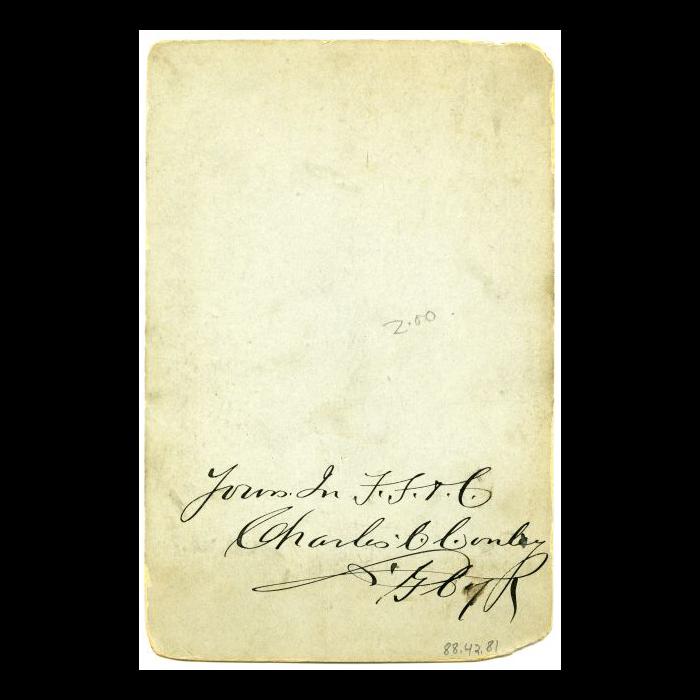 2.00
Yours In F. F. & C.
Charles C. Conley
88.42.81